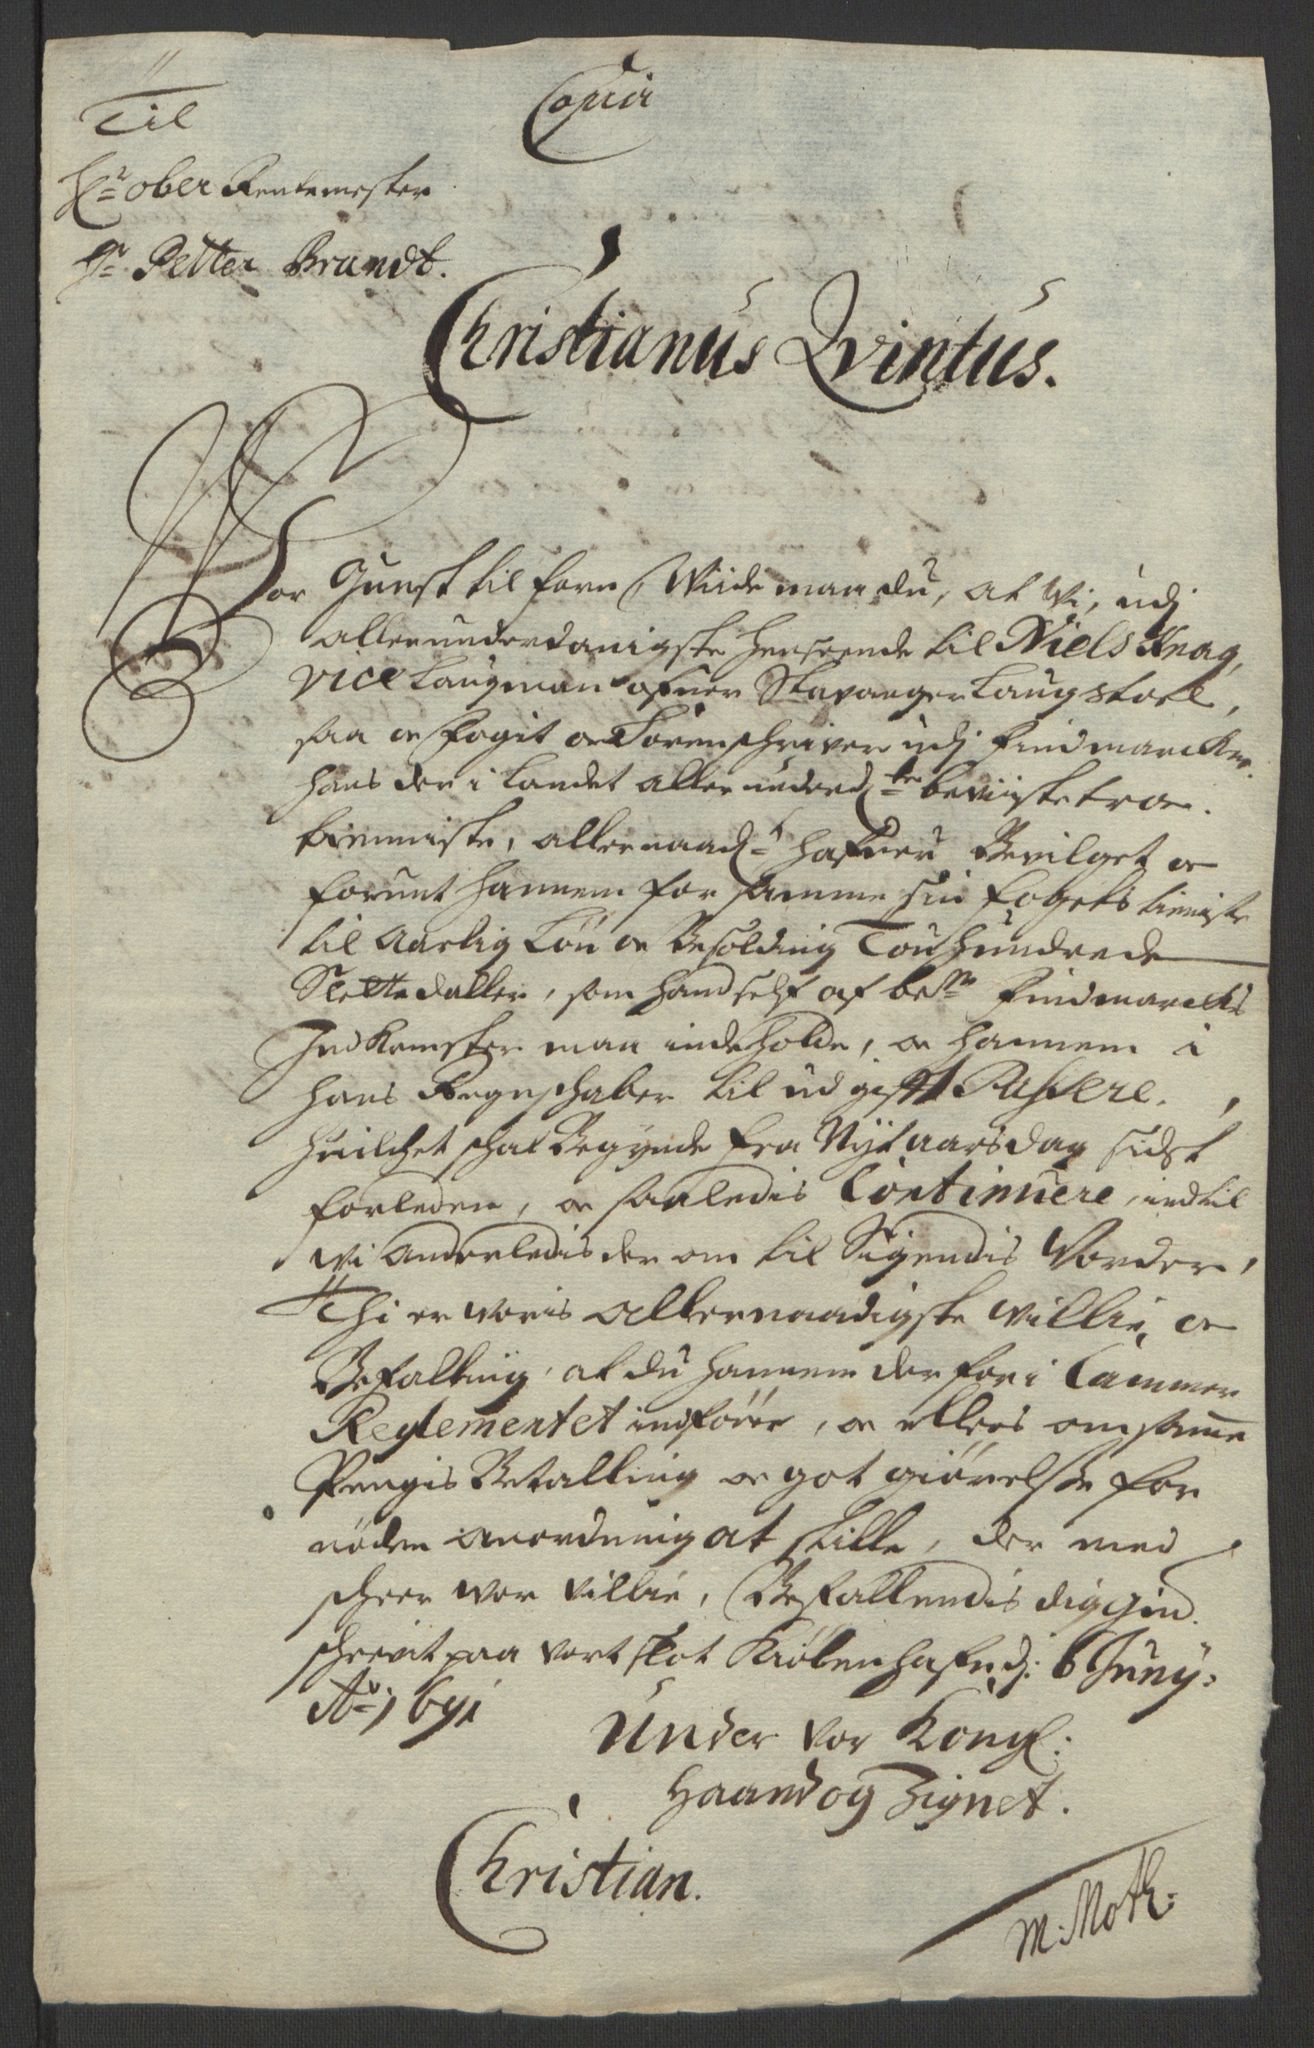 Copia
Til
Hr ober Rentemester
Hr Petter Brandt.
Christianus Qvintus.
Vor Gunst til forn, Wiide maa du, at Wi, udj
allerunderdanigste henseende til Niels Knag,
vice Laugman ofuer Stavanger Laugstoel,
saa oc Fogit oc Sorenschriver udj Findmarcken
hans der i Landet allerunderdte beviiste troe
tienniste, allernaadt hafuer Bevilget oc
forunt hannem for samme sin Fogets tieniste
til Aarlig Løn oc Besolding Touhundrede
Slettedaller, som hand self af bete Findmarckens
Indkomster maa indeholde, oc hannem i
hans Regnschaber til udgift Passere,
huilchet schal Begynde fra Nytaarsdag sidst
forleden, oc saaledis Continuere, indtil
vi Anderledis der om til Sigendis Vorder,
Thi er voris allernaadigste Villie, oc
Befalling, at du hannem derfor i Cammer
Reglementet indfører, oc ellers om samme
Pengis Betalling oc got giørelse for
nøden anordning at stille, der med
scheer vor Villie, Befallendis dig Gud
schrevit paa vort slot Kiøbenhafn dj: 6 Juny:
Ao 1691
Under Vor Kongl:
Haand og Zignet.
Christian.
M: Moth: